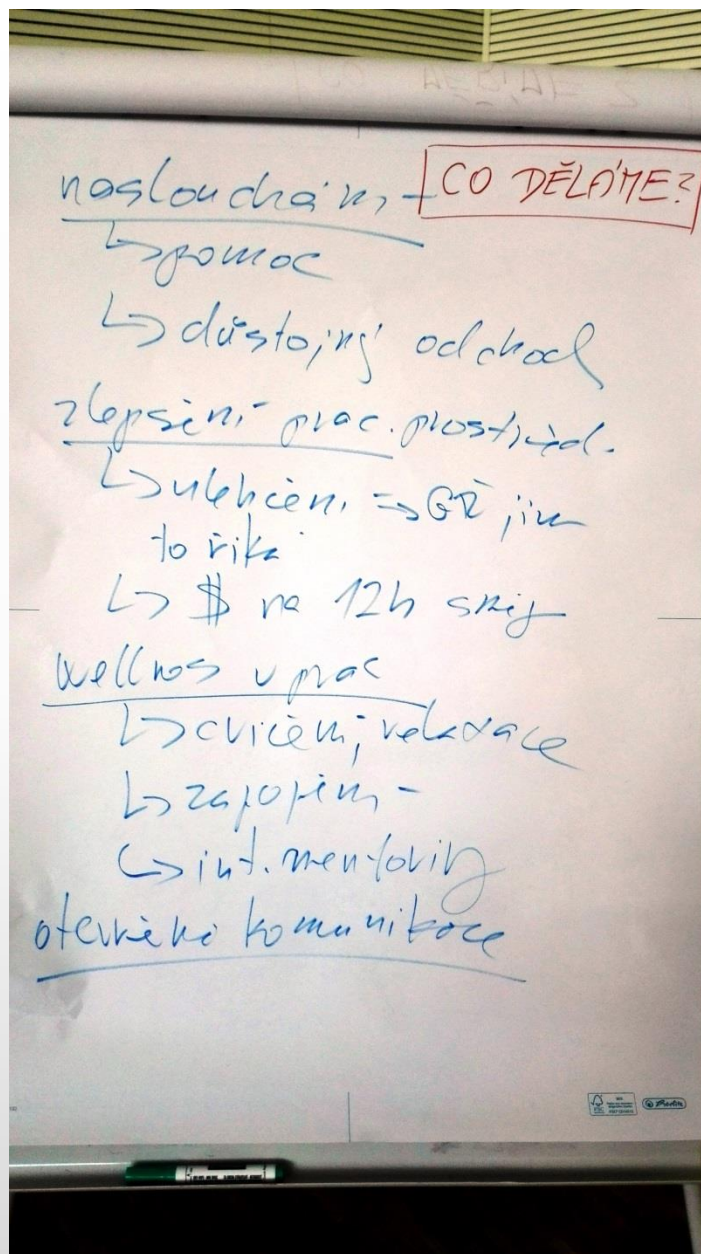 CO DĚLÁME?
naslouchání
↳ pomoc
↳ důstojný odchod
zlepšení prac. prostřed.
↳ ulehčení ⇒ GŘ jim
to říká
↳ $ na 12h
wellnes v prac
↳ cvičení, relaxace
↳ zapojení
↳ int. mentoring
otevřená komunikace